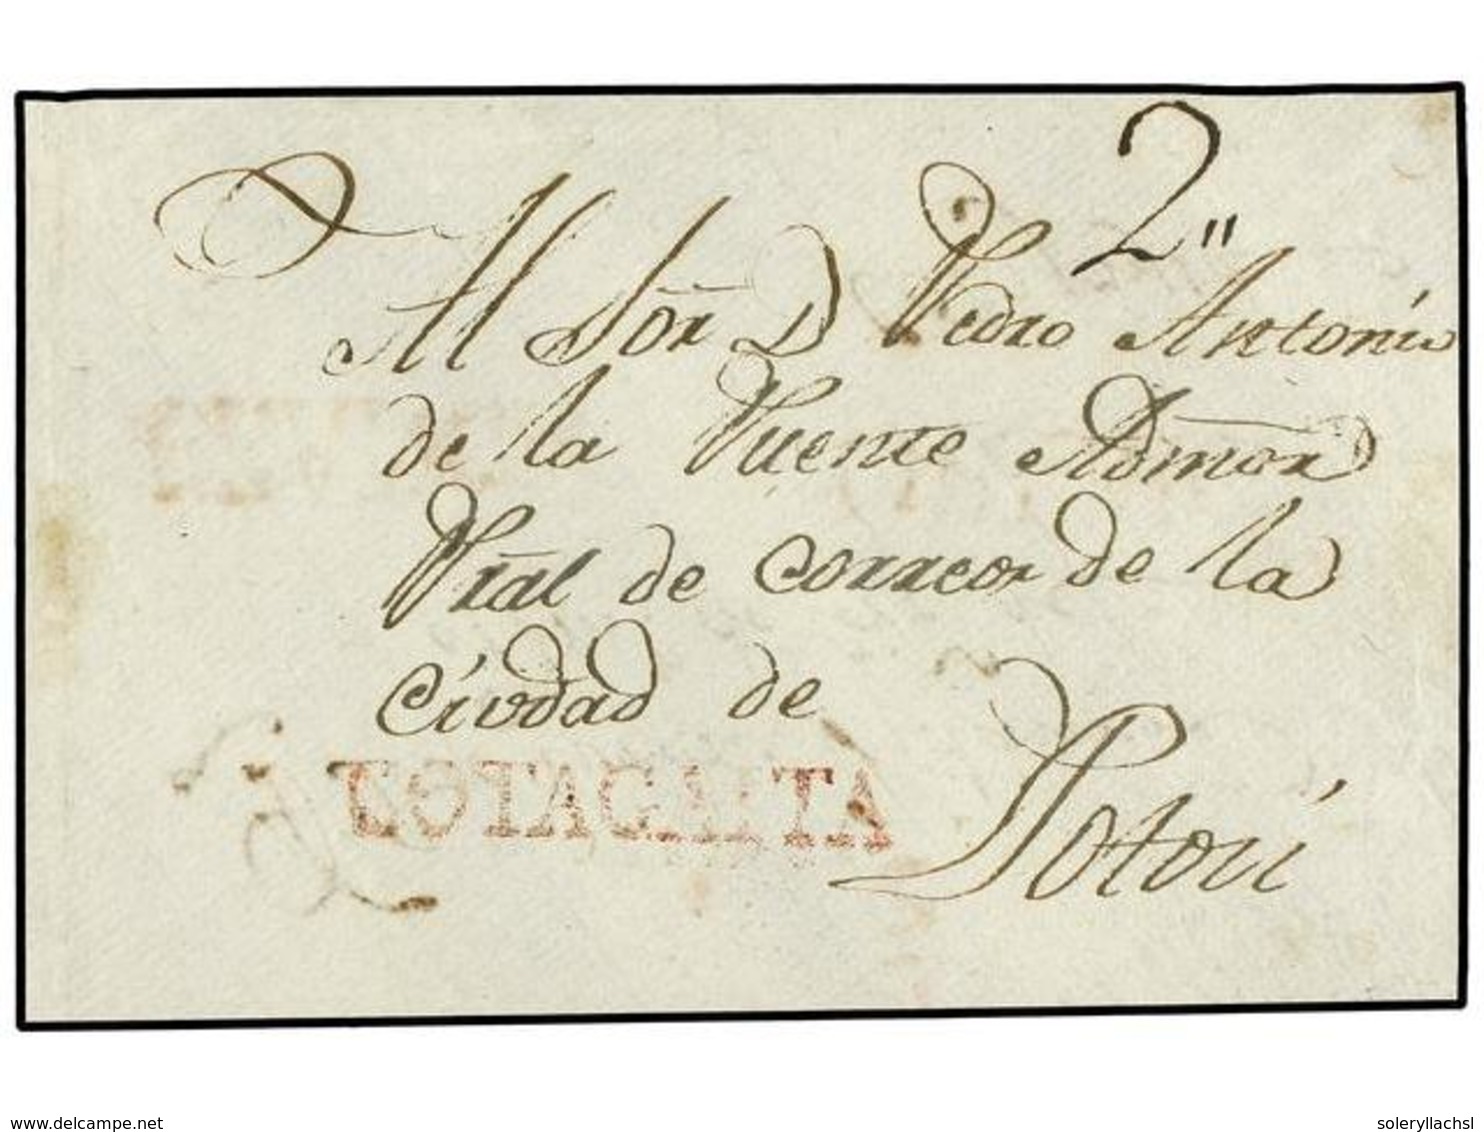 2"
Al Sōr D Pedro Antonio
de la Fuente Admor
Pra̅l de correos de la
Ciudad de
Potosí
COTAGAITA
www.delcampe.net
soleryllachsl